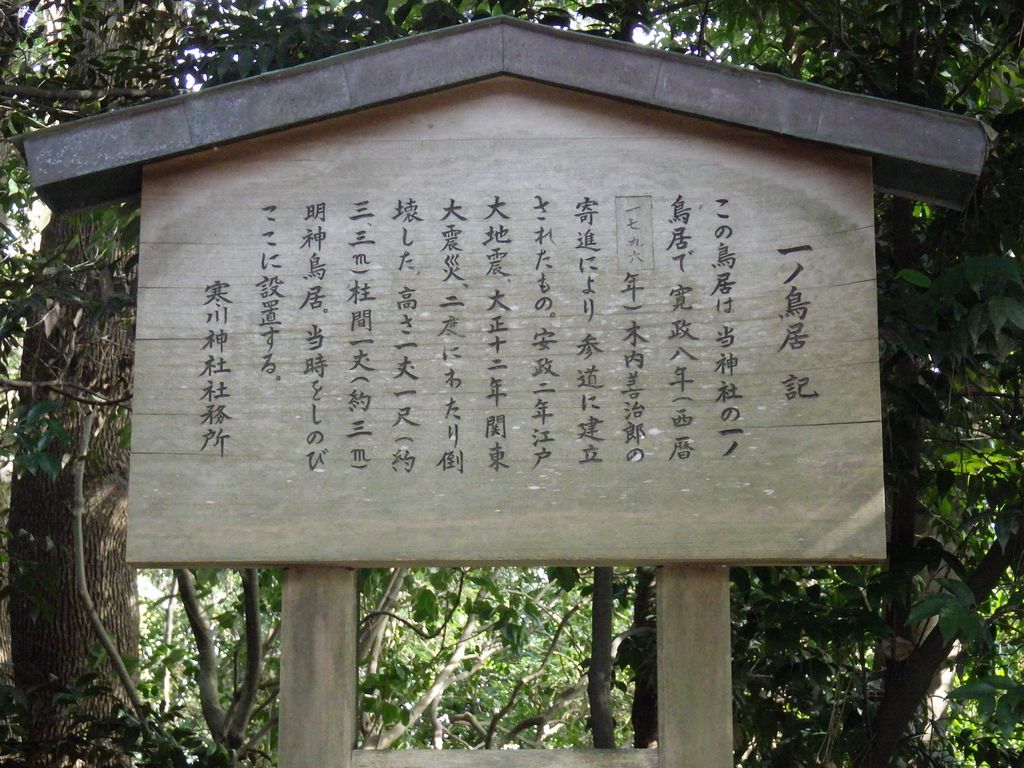 一ノ鳥居 記
この鳥居は 当神社の一ノ
鳥居で 寛政八年(西暦
一七九六年) 木内善治郎の
寄進により 参道に建立
されたもの。安政二年江戸
大地震、大正十二年 関東
大震災、二度にわたり倒
壊した。高さ一丈一尺(約
三、三m)柱間一丈(約三m)
明神鳥居。当時をしのび
ここに設置する。
寒川神社社務所